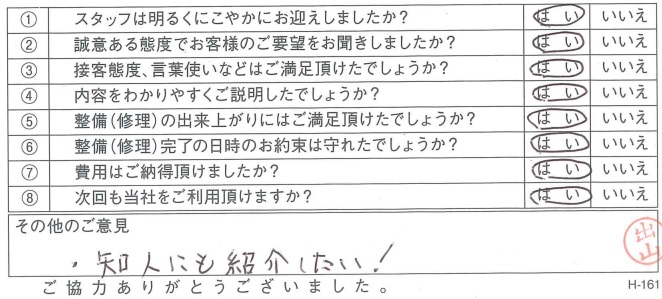 ① スタッフは明るくにこやかにお迎えしましたか? はい いいえ
② 誠意ある態度でお客様のご要望をお聞きしましたか? はい いいえ
③ 接客態度、言葉使いなどはご満足頂けたでしょうか? はい いいえ
④ 内容をわかりやすくご説明したでしょうか? はい いいえ
⑤ 整備(修理)の出来上がりにはご満足頂けたでしょうか? はい いいえ
⑥ 整備(修理)完了の日時のお約束は守れたでしょうか? はい いいえ
⑦ 費用はご納得頂けましたか? はい いいえ
⑧ 次回も当社をご利用頂けますか? はい いいえ
その他のご意見
・知人にも紹介したい!
出山
ご協力ありがとうございました。 H-161